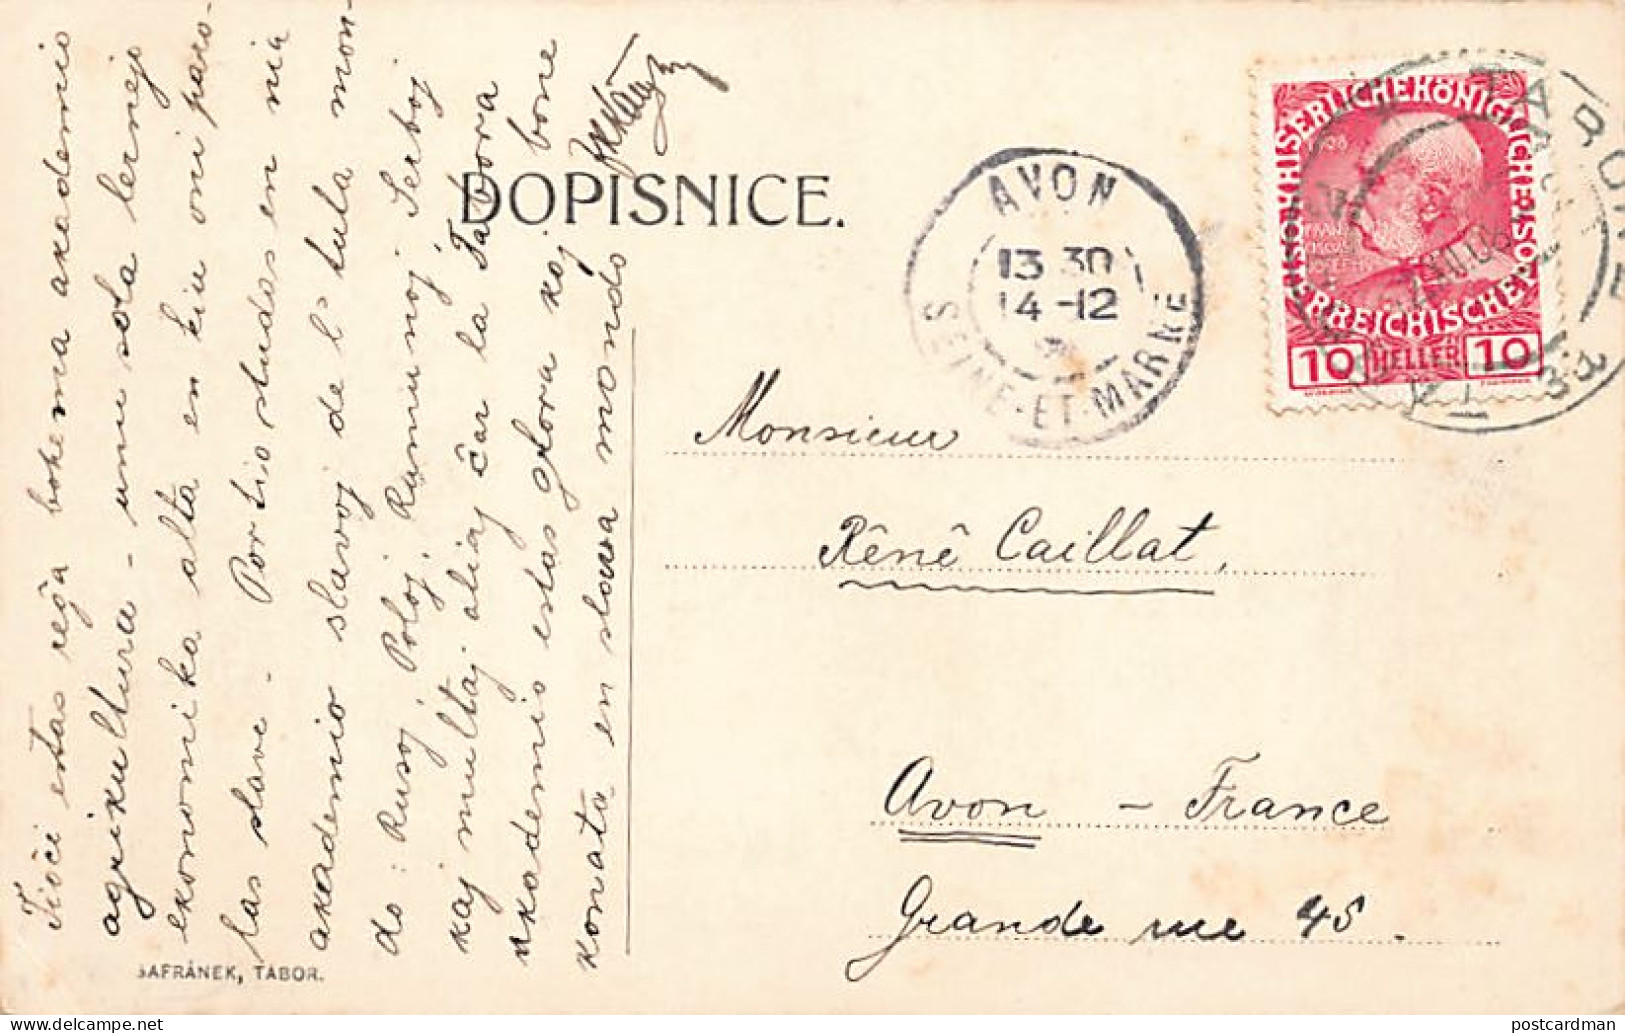 Tioĉi estas reĝa bohema akademio
agrikultura - unu sola lernejo
ekonomika alta en kiu oni paro-
las slave. Por tio studas en nia
akademio slavoj de l' tuta mon-
do: Rusoj, Poloj, Rumunoj, Serboj
kaj multaj aliaj ĉar la Tabora
akademio estas glora kaj bone
konata en slava mondo
DOPISNICE.
ŠAFRÁNEK, TÁBOR.
AVON
13 30
14-12
SEINE-ET-MARNE
KAISERLICHE KÖNIGLICHE ÖSTERREICHISCHE POST
1908
10 HELLER 10
TABOR
Monsieur
Rênê Caillat,
Avon - France
Grande rue 45.
postcardman